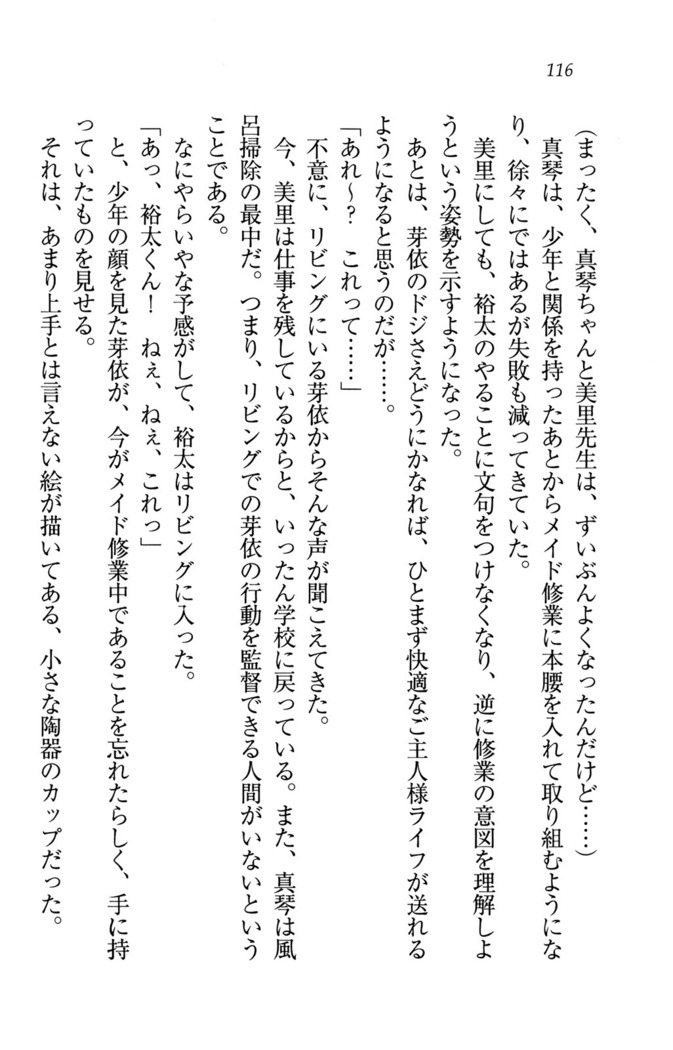 116
(まったく、真琴ちゃんと美里先生は、ずいぶんよくなったんだけど……)
真琴は、少年と関係を持ったあとからメイド修業に本腰を入れて取り組むようにな
り、徐々にではあるが失敗も減ってきていた。
美里にしても、裕太のやることに文句をつけなくなり、逆に修業の意図を理解しよ
うという姿勢を示すようになった。
あとは、芽依のドジさえどうにかなれば、ひとまず快適なご主人様ライフが送れる
ようになると思うのだが……。
「あれ〜？　これって……」
不意に、リビングにいる芽依からそんな声が聞こえてきた。
今、美里は仕事を残しているからと、いったん学校に戻っている。また、真琴は風
呂掃除の最中だ。つまり、リビングでの芽依の行動を監督できる人間がいないという
ことである。
なにやらいやな予感がして、裕太はリビングに入った。
「あっ、裕太くん！　ねぇ、ねぇ、これっ」
と、少年の顔を見た芽依が、今がメイド修業中であることを忘れたらしく、手に持
っていたものを見せる。
それは、あまり上手とは言えない絵が描いてある、小さな陶器のカップだった。